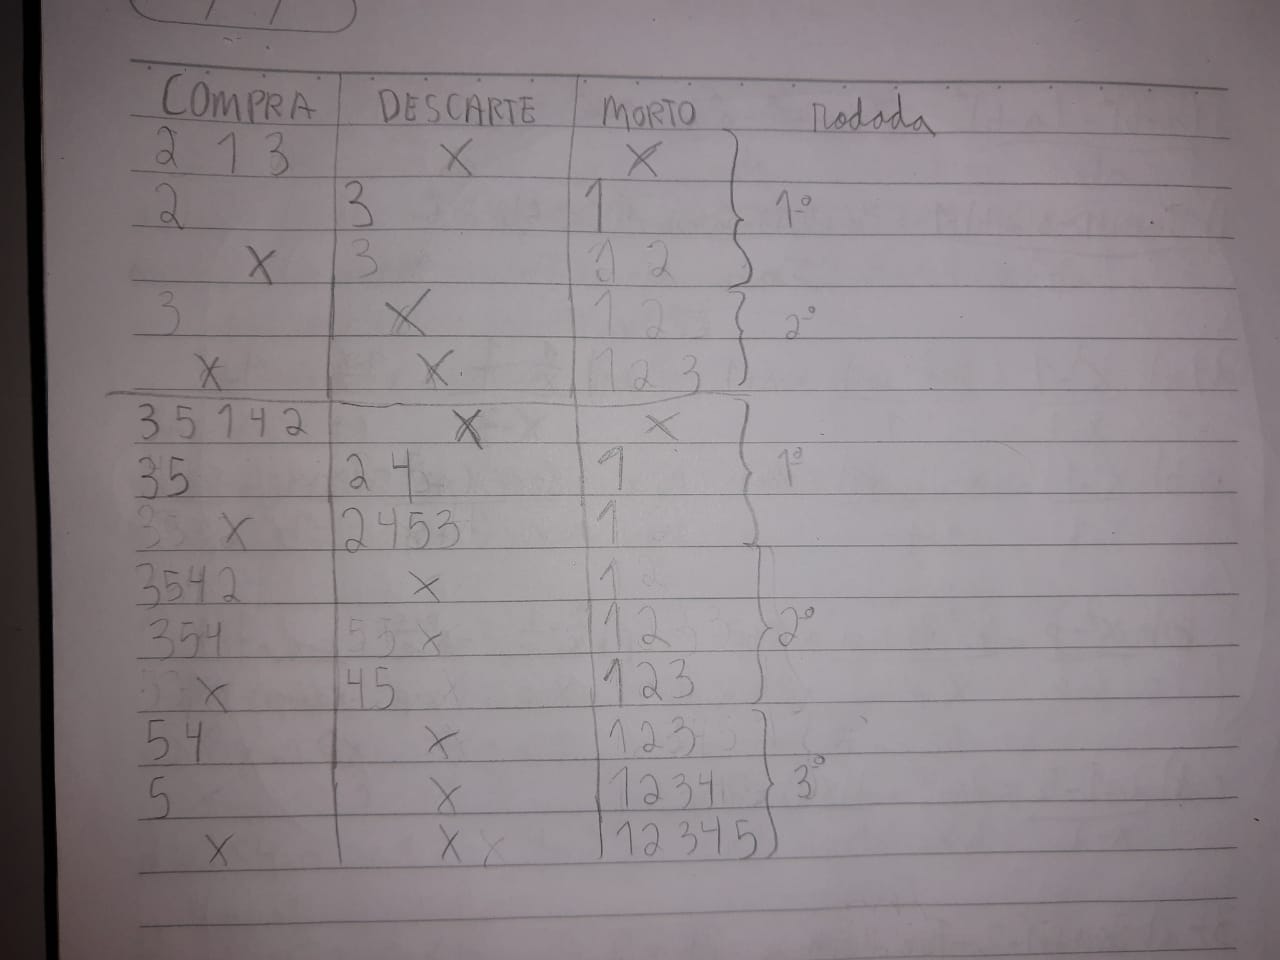 COMPRA DESCARTE MORTO Rodada
2 1 3 X X
2 3 1 1º
X 3 1 2
3 X 1 2 2º
X X 1 2 3
3 5 1 4 2 X X
35 2 4 1 1º
X 2453 1
3542 X 1
354 X 12 2º
X 45 123
54 X 123
5 X 1234 3º
X X 12345